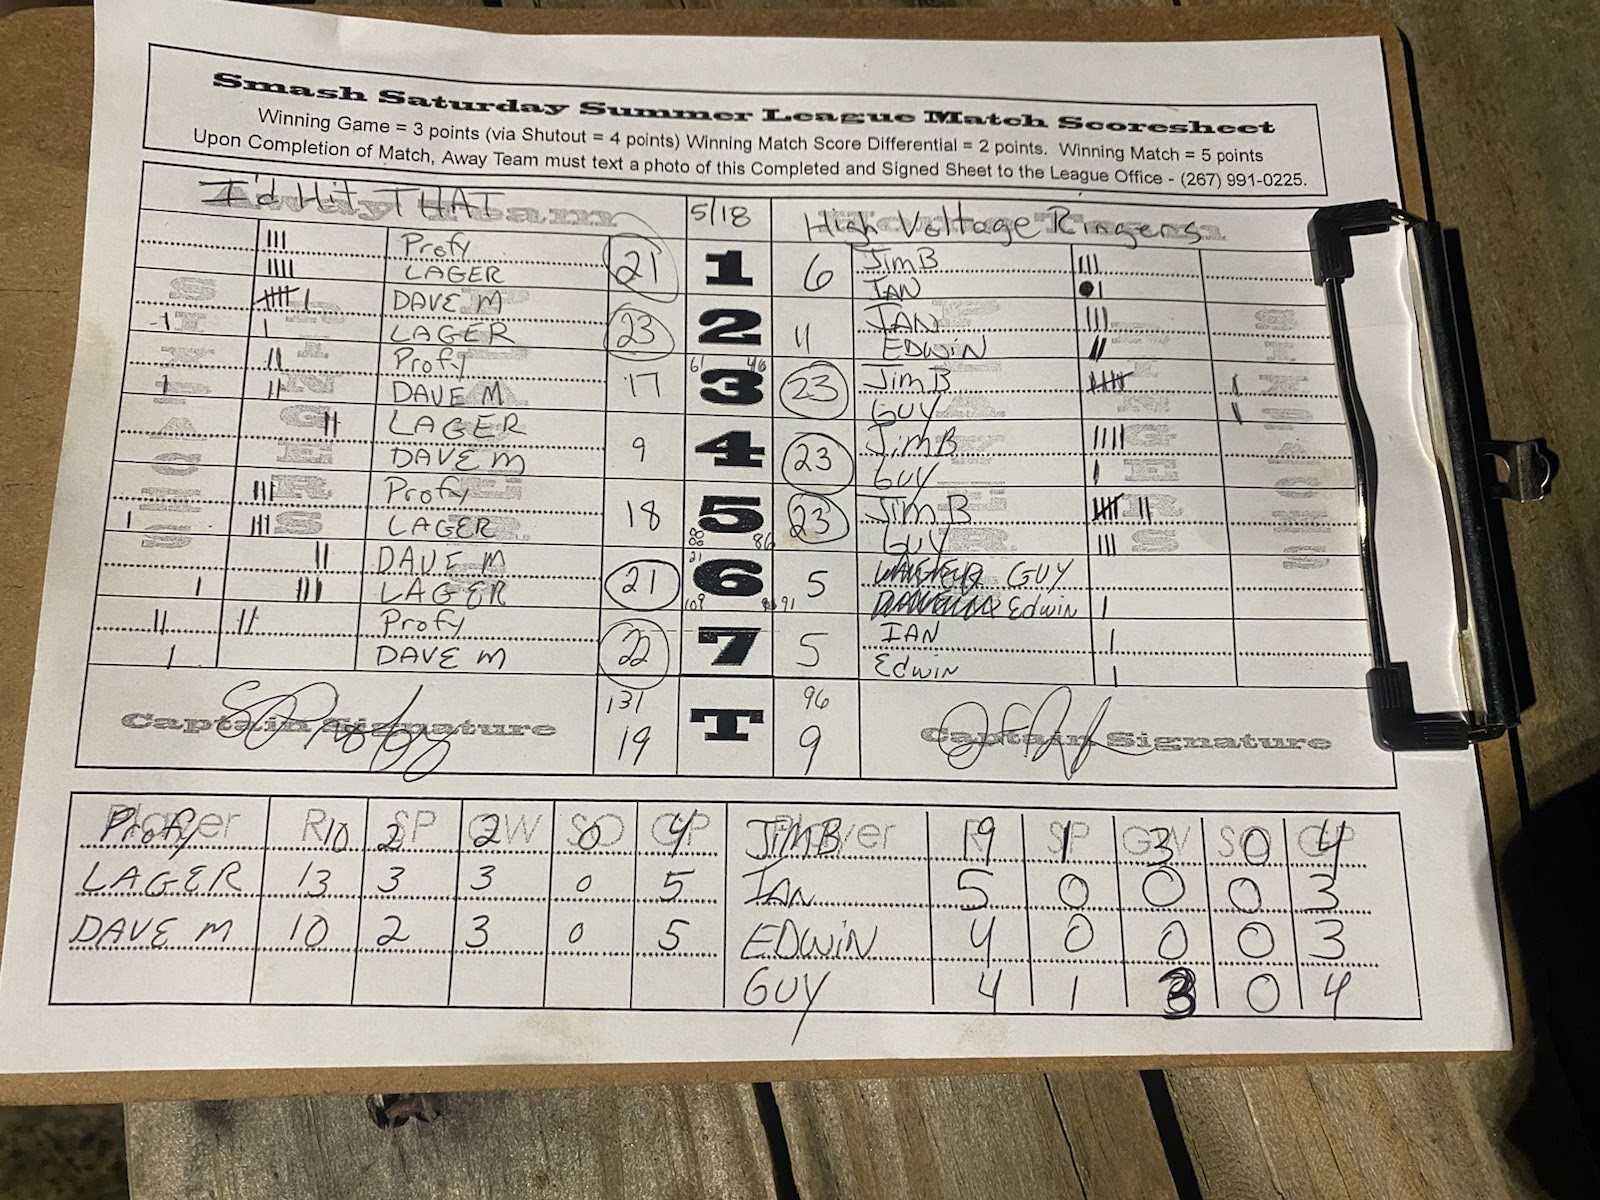 Smash Saturday Summer League Match Scoresheet
Winning Game = 3 points (via Shutout = 4 points) Winning Match Score Differential = 2 points. Winning Match = 5 points
Upon Completion of Match, Away Team must text a photo of this Completed and Signed Sheet to the League Office - (267) 991-0225.
I'd Hit THAT 5/18 High Voltage Ringers
Profy 21 1 6 Jim B
LAGER IAN
DAVE M 23 2 11 IAN
LAGER EDWiN
Profy 17 61 3 46 23 Jim B
DAVE M GUY
LAGER 9 4 23 Jim B
DAVE M GUY
Profy 18 5 23 Jim B
LAGER 88 86 GUY
DAVE M 21 21 6 5 GUY
LAGER 109 91 Edwin
Profy 22 7 5 IAN
DAVE M Edwin
Captain Signature 131 T 96 Captain Signature
19 9
Profy 10 2 2 0 4 JIMB 19 1 3 0 4
LAGER 13 3 3 0 5 IAN 5 0 0 0 3
DAVE M 10 2 3 0 5 EDWiN 4 0 0 0 3
GUY 4 1 3 0 4